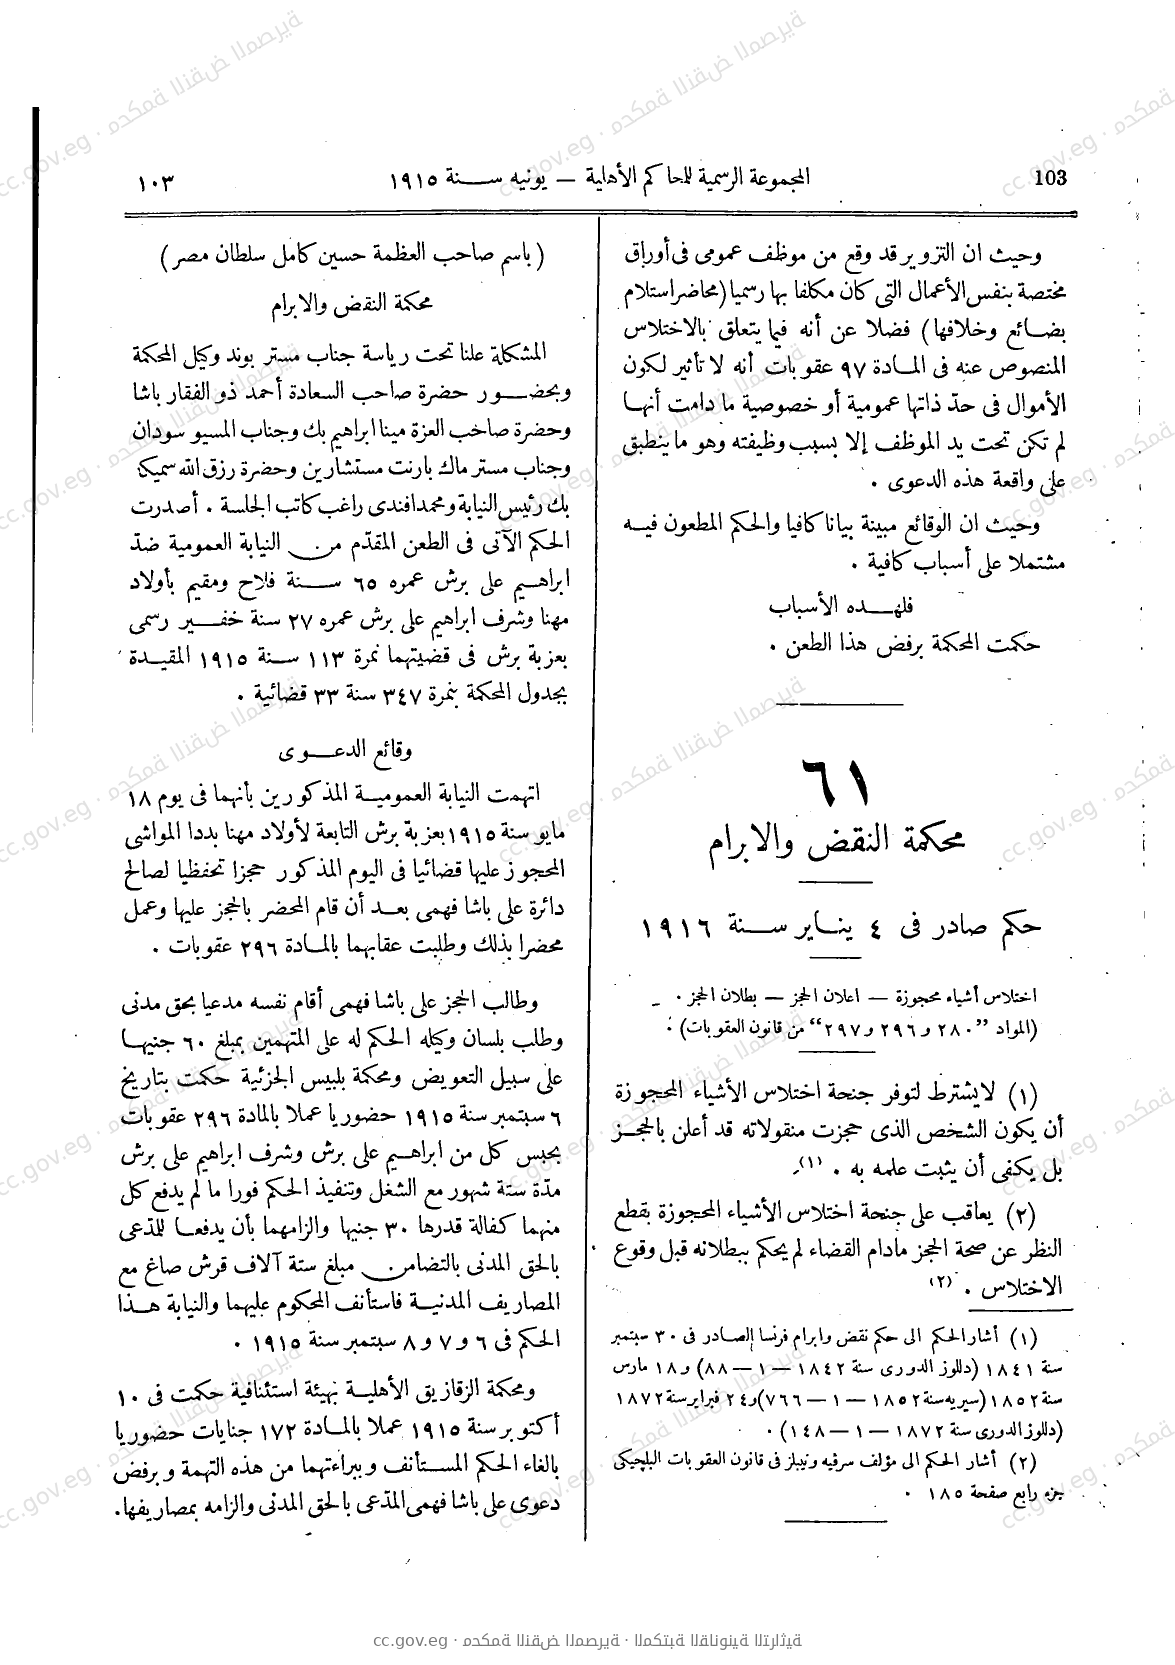 103 المجموعة الرسمية للمحاكم الأهلية — يونيه سنة ١٩١٥ ١٠٣
وحيث ان التزوير قد وقع من موظف عمومى فى أوراق
مختصة بنفس الأعمال التى كان مكلفا بها رسميا (محاضر استلام
بضائع وخلافها) فضلا عن أنه فيما يتعلق بالاختلاس
المنصوص عنه فى المادة ٩٧ عقوبات أنه لا تأثير لكون
الأموال فى حدّ ذاتها عمومية أو خصوصية ما دامت أنها
لم تكن تحت يد الموظف إلا بسبب وظيفته وهو ما ينطبق
على واقعة هذه الدعوى .
وحيث ان الوقائع مبينة بيانا كافيا والحكم المطعون فيه
مشتملا على أسباب كافية .
فلهذه الأسباب
حكمت المحكمة برفض هذا الطعن .
٦١
محكمة النقض والابرام
حكم صادر فى ٤ يناير سنة ١٩١٦
اختلاس أشياء محجوزة — اعلان الحجز — بطلان الحجز .
(المواد ”٢٨٠ و ٢٩٦ و ٢٩٧“ من قانون العقوبات) .
(١) لا يشترط لتوفر جنحة اختلاس الأشياء المحجوزة
أن يكون الشخص الذى حجزت منقولاته قد أعلن بالحجز
بل يكفى أن يثبت علمه به . (١)
(٢) يعاقب على جنحة اختلاس الأشياء المحجوزة بقطع
النظر عن صحة الحجز مادام القضاء لم يحكم ببطلانه قبل وقوع
الاختلاس . (٢)
(١) أشار الحكم الى حكم نقض وابرام فرنسا الصادر فى ٣٠ سبتمبر
سنة ١٨٤١ (دللوز الدورى سنة ١٨٤٢ — ١ — ٨٨) و ١٨ مارس
سنة ١٨٥٢ (سيريه سنة ١٨٥٢ — ١ — ٧٦٦) و ٢٤ فبراير سنة ١٨٧٢
(دللوز الدورى سنة ١٨٧٢ — ١ — ١٤٨) .
(٢) أشار الحكم الى مؤلف سرفيه ونيبلز فى قانون العقوبات البلچيكى
جزء رابع صفحة ١٨٥ .
(باسم صاحب العظمة حسين كامل سلطان مصر)
محكمة النقض والابرام
المشكلة علنا تحت رياسة جناب مستر بوند وكيل المحكمة
وبحضور حضرة صاحب السعادة أحمد ذو الفقار باشا
وحضرة صاحب العزة مينا ابراهيم بك وجناب المسيو سودان
وجناب مستر ماك بارنت مستشارين وحضرة رزق الله سميكه
بك رئيس النيابة ومحمد افندى راغب كاتب الجلسة . أصدرت
الحكم الآتى فى الطعن المقدّم من النيابة العمومية ضدّ
ابراهيم على برش عمره ٦٥ سنة فلاح ومقيم بأولاد
مهنا وشرف ابراهيم على برش عمره ٢٧ سنة خفير رسمى
بعزبة برش فى قضيتهما نمرة ١١٣ سنة ١٩١٥ المقيدة
بجدول المحكمة بنمرة ٣٤٧ سنة ٣٣ قضائية .
وقائع الدعوى
اتهمت النيابة العمومية المذكورين بأنهما فى يوم ١٨
مايو سنة ١٩١٥ بعزبة برش التابعة لأولاد مهنا بددا المواشى
المحجوز عليها قضائيا فى اليوم المذكور حجزا تحفظيا لصالح
دائرة على باشا فهمى بعد أن قام المحضر بالحجز عليها وعمل
محضرا بذلك وطلبت عقابهما بالمادة ٢٩٦ عقوبات .
وطالب الحجز على باشا فهمى أقام نفسه مدعيا بحق مدنى
وطلب بلسان وكيله الحكم له على المتهمين بمبلغ ٦٠ جنيها
على سبيل التعويض ومحكمة بلبيس الجزئية حكمت بتاريخ
٦ سبتمبر سنة ١٩١٥ حضوريا عملا بالمادة ٢٩٦ عقوبات
بحبس كل من ابراهيم على برش وشرف ابراهيم على برش
مدّة ستة شهور مع الشغل وتنفيذ الحكم فورا ما لم يدفع كل
منهما كفالة قدرها ٣٠ جنيها والزامهما بأن يدفعا للمدّعى
بالحق المدنى بالتضامن مبلغ ستة آلاف قرش صاغ مع
المصاريف المدنية فاستأنف المحكوم عليهما والنيابة هذا
الحكم فى ٦ و ٧ و ٨ سبتمبر سنة ١٩١٥ .
ومحكمة الزقازيق الأهلية بهيئة استئنافية حكمت فى ١٠
أكتوبر سنة ١٩١٥ عملا بالمادة ١٧٢ جنايات حضوريا
بالغاء الحكم المستأنف وببراءتهما من هذه التهمة وبرفض
دعوى على باشا فهمى المدّعى بالحق المدنى والزامه بمصاريفها.
cc.gov.eg · محكمة النقض المصرية · المكتبة القانونية التراثية